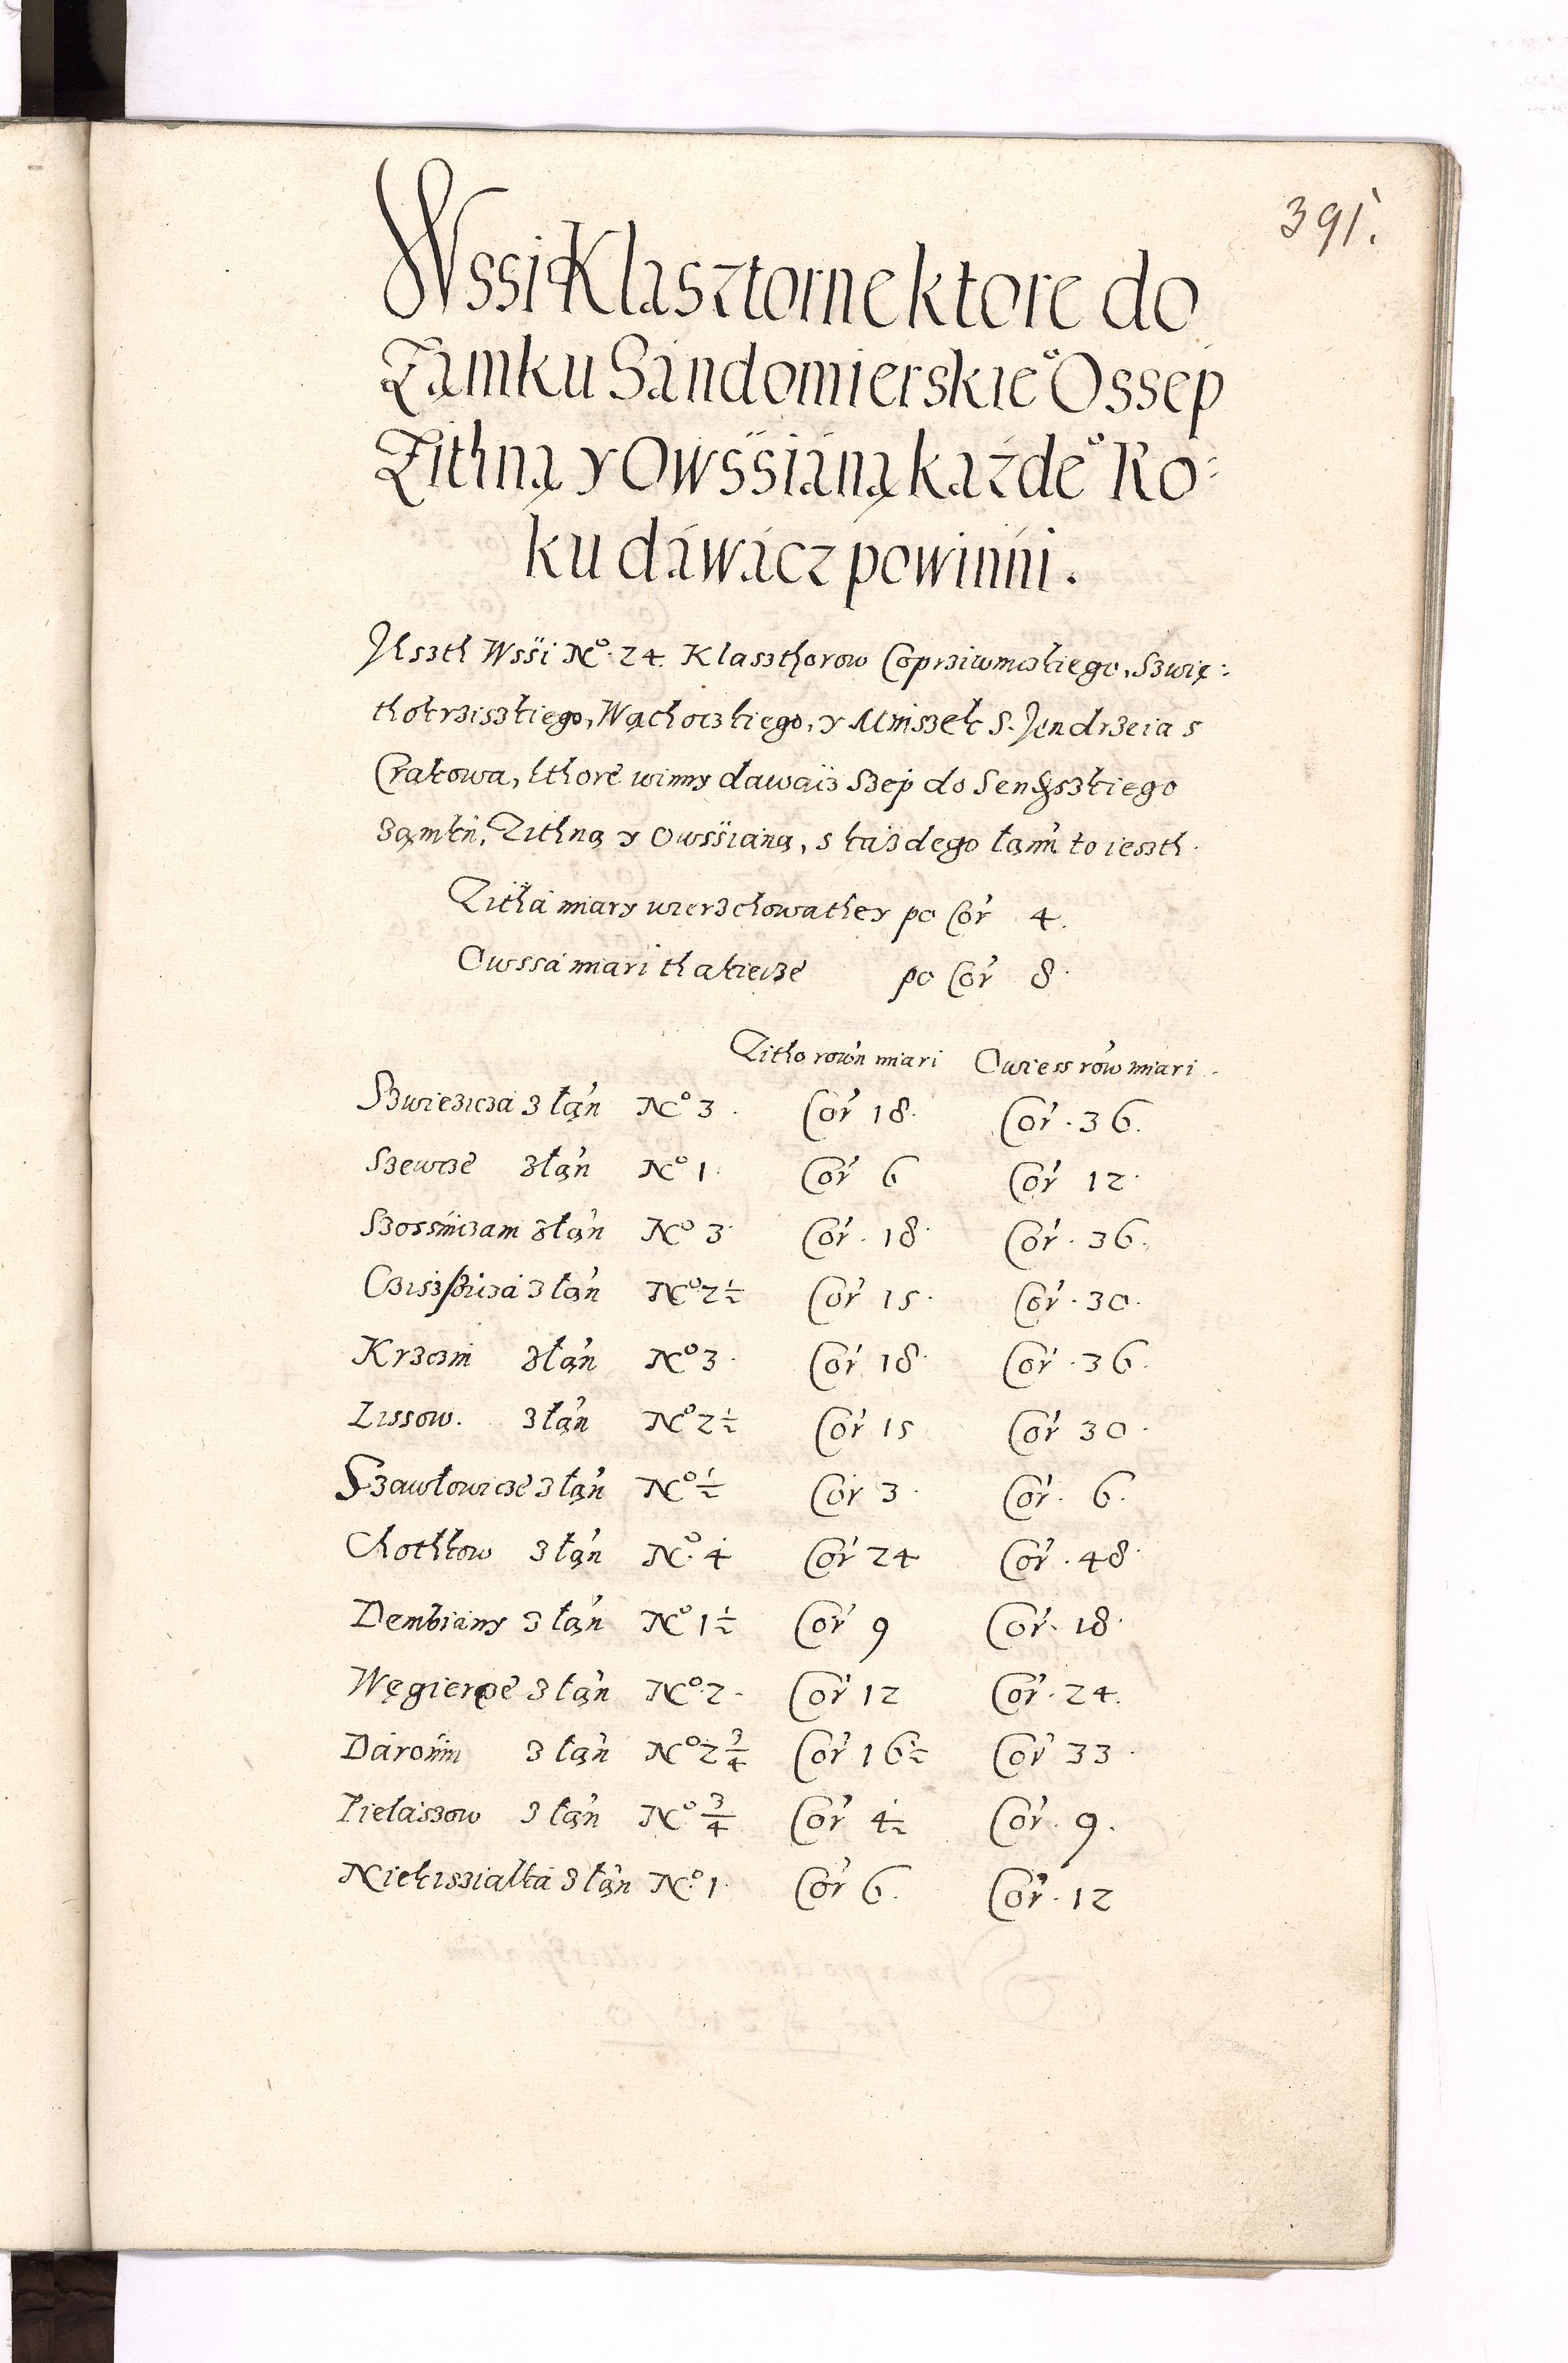 391.
Wssi Klasztorne ktore do
Zamku Sandomierskie° Ossep
Zithną y Owssianą każde° Ro:
ku dawacz powinni.
Jhszth Wssi N° 24. Klaszthorow Coprziwniczkiego, Szwię:
thokrziszkiego, Wąchoczkiego, y Mniszek S. Jendrzeia s
Crakowa, kthore winny dawacz Szep do
Zamku, Zithną y Owssianą, s każdego łanu to ieszth.
Zitha miary wierzchowathey po Cor 4.
Owssa miari thakieize po Cor 8.
Zitho rown miari Owiess row miari.
Swieczicza z łan N° 3. Cor 18. Cor. 36.
Szewcze z łan N° 1. Cor 6 Cor 12.
z łan N° 3. Cor. 18. Cor. 36.
z łan N° 2½ Cor 15. Cor. 30.
Krzczin z łan N° 3. Cor 18. Cor. 36.
Lissow. z łan N° 2½ Cor 15 Cor 30.
Szawłowicze z łan N° ½ Cor 3. Cor. 6.
Chothkow z łan N°. 4 Cor 24 Cor. 48.
Dembiany z łan N° 1½ Cor 9 Cor. 18.
z łan N°. 2. Cor 12 Cor. 24.
Daromin z łan N° 2¾ Cor 16½ Cor 33.
Pielaszow z łan N° ¾ Cor 4½ Cor. 9.
Niekissialka z łan N°. 1. Cor 6. Cor. 12